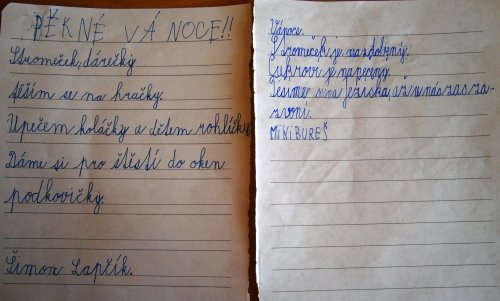 PĚKNÉ VÁNOCE!!
Stromeček, dárečky
těším se na hračky.
Upečem koláčky a dětem rohlíčky.
Dáme si pro štěstí do oken
podkovičky.
Šimon Lapčík.
Vánoce.
Stromeček je nazdobený.
cukroví je napečený.
Těsíme se na Ježíška až u nás zas za-
zvoní.
MIKI BUREŠ